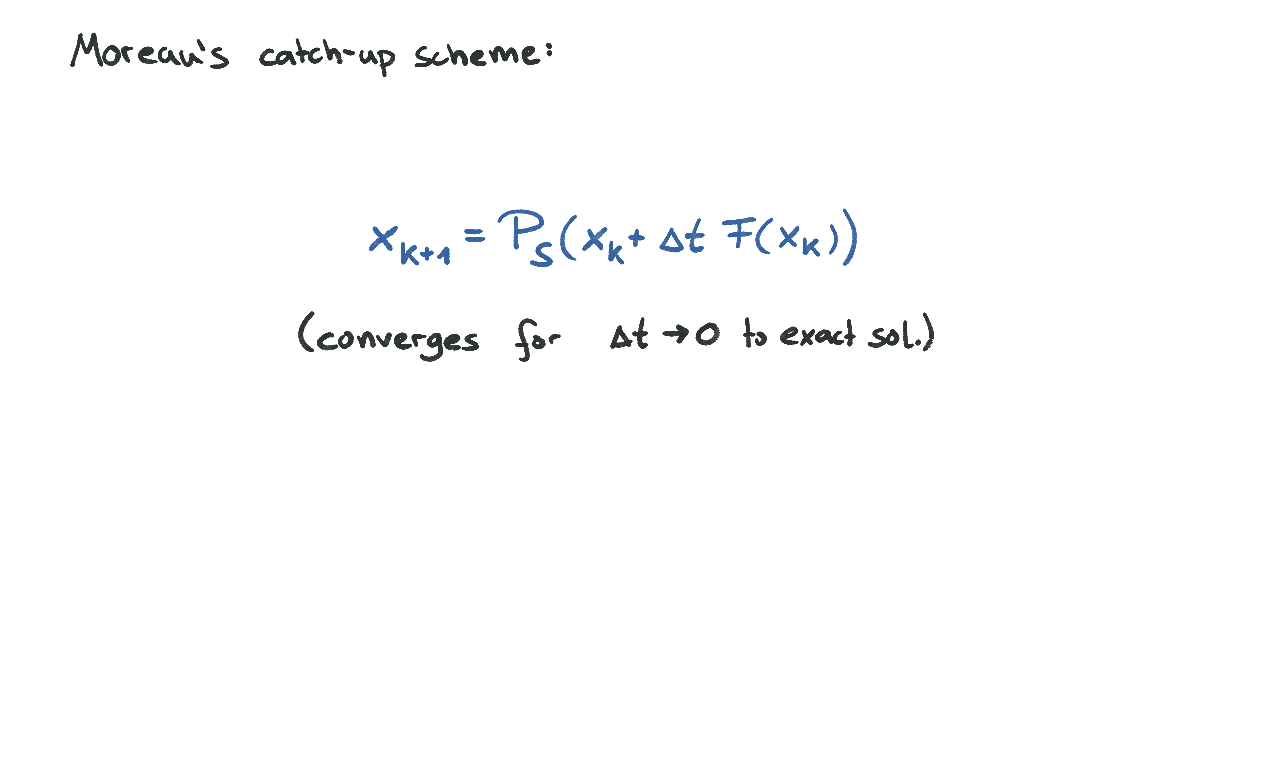 Moreau's catch-up scheme:
x_{k+1} = P_S(x_k + Δt F(x_k))
(converges for Δt → 0 to exact sol.)